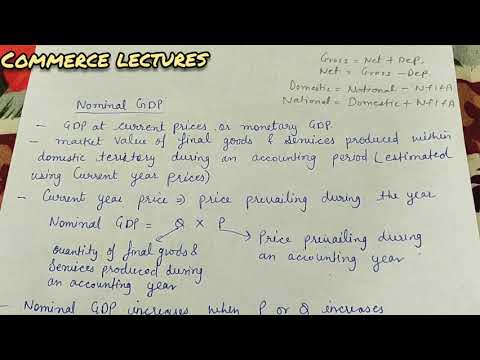 COMMERCE LECTURES
Gross = Net + Dep.
Net = Gross - Dep
Domestic = National - NFIFA
National = Domestic + NFIFA
Nominal GDP
- GDP at current prices or monetary GDP.
- market value of final goods & services produced within
domestic teristory during an accounting period (estimated
using Current year prices)
- Current year price => price prevailing during the year
Nominal GDP = Q × P
quantity of final goods &
Services produced during
an accounting year
Price prevailing during
an accounting year
- Nominal GDP increases when P or Q increases